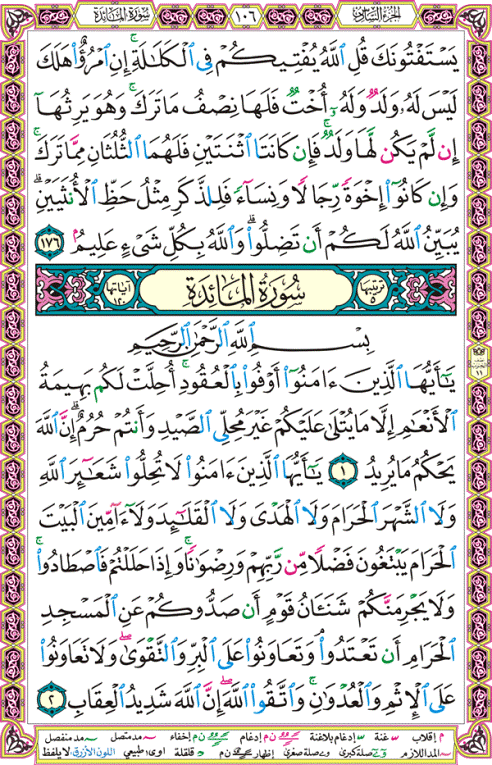 الجزء السادس ١٠٦ سورة المائدة
يَسْتَفْتُونَكَ قُلِ ٱللَّهُ يُفْتِيكُمْ فِى ٱلْكَلَٰلَةِ ۚ إِنِ ٱمْرُؤٌا۟ هَلَكَ
لَيْسَ لَهُۥ وَلَدٌ وَلَهُۥٓ أُخْتٌ فَلَهَا نِصْفُ مَا تَرَكَ ۚ وَهُوَ يَرِثُهَآ
إِن لَّمْ يَكُن لَّهَا وَلَدٌ ۚ فَإِن كَانَتَا ٱثْنَتَيْنِ فَلَهُمَا ٱلثُّلُثَانِ مِمَّا تَرَكَ ۚ
وَإِن كَانُوٓا۟ إِخْوَةً رِّجَالًا وَنِسَآءً فَلِلذَّكَرِ مِثْلُ حَظِّ ٱلْأُنثَيَيْنِ ۗ
يُبَيِّنُ ٱللَّهُ لَكُمْ أَن تَضِلُّوا۟ ۗ وَٱللَّهُ بِكُلِّ شَىْءٍ عَلِيمٌۢ ١٧٦
ترتيبها ٥ سورة المائدة آياتها ١٢٠
بِسْمِ ٱللَّهِ ٱلرَّحْمَٰنِ ٱلرَّحِيمِ
يَٰٓأَيُّهَا ٱلَّذِينَ ءَامَنُوٓا۟ أَوْفُوا۟ بِٱلْعُقُودِ ۚ أُحِلَّتْ لَكُم بَهِيمَةُ
ٱلْأَنْعَٰمِ إِلَّا مَا يُتْلَىٰ عَلَيْكُمْ غَيْرَ مُحِلِّى ٱلصَّيْدِ وَأَنتُمْ حُرُمٌ ۗ إِنَّ ٱللَّهَ
يَحْكُمُ مَا يُرِيدُ ١ يَٰٓأَيُّهَا ٱلَّذِينَ ءَامَنُوا۟ لَا تُحِلُّوا۟ شَعَٰٓئِرَ ٱللَّهِ
وَلَا ٱلشَّهْرَ ٱلْحَرَامَ وَلَا ٱلْهَدْىَ وَلَا ٱلْقَلَٰٓئِدَ وَلَآ ءَآمِّينَ ٱلْبَيْتَ
ٱلْحَرَامَ يَبْتَغُونَ فَضْلًا مِّن رَّبِّهِمْ وَرِضْوَٰنًا ۚ وَإِذَا حَلَلْتُمْ فَٱصْطَادُوا۟ ۚ
وَلَا يَجْرِمَنَّكُمْ شَنَـَٔانُ قَوْمٍ أَن صَدُّوكُمْ عَنِ ٱلْمَسْجِدِ
ٱلْحَرَامِ أَن تَعْتَدُوا۟ ۘ وَتَعَاوَنُوا۟ عَلَى ٱلْبِرِّ وَٱلتَّقْوَىٰ ۖ وَلَا تَعَاوَنُوا۟
عَلَى ٱلْإِثْمِ وَٱلْعُدْوَٰنِ ۚ وَٱتَّقُوا۟ ٱللَّهَ ۖ إِنَّ ٱللَّهَ شَدِيدُ ٱلْعِقَابِ ٢
م إقلاب غنة إدغام بلاغنة ن م إدغام ن م إخفاء مد متصل مد منفصل
المد اللازم صلة كبرى صلة صغرى إظهار ن م قلقلة اوى: طبيعي اللون الأزرق: لا يلفظ